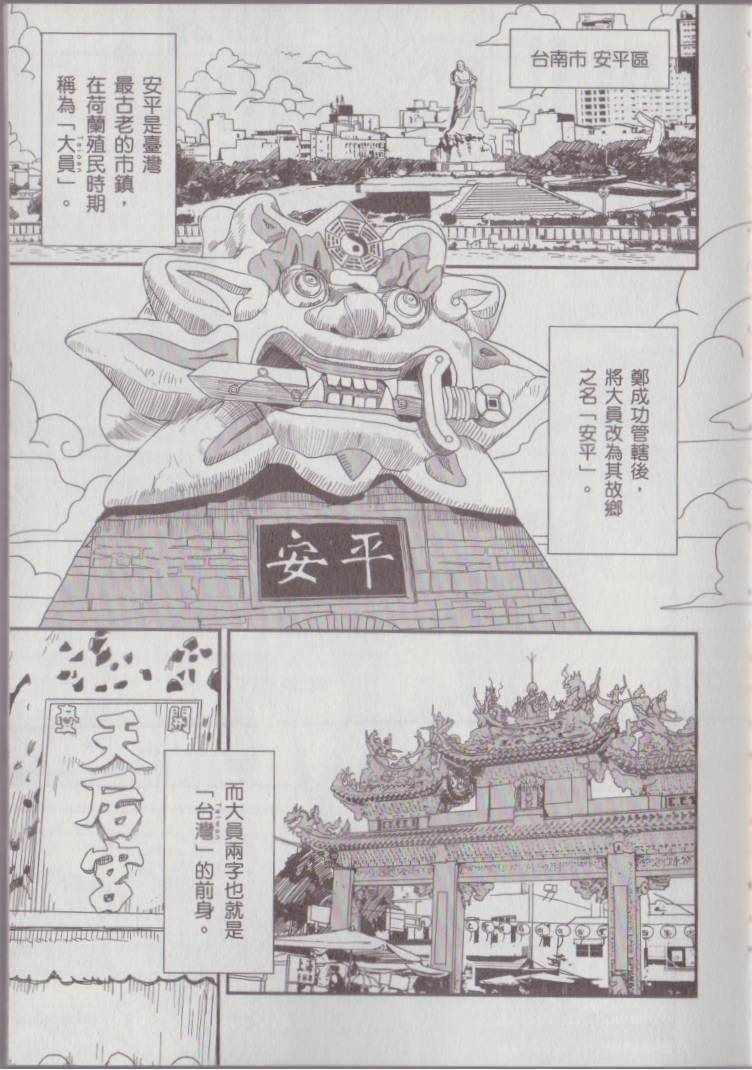 台南市 安平區
安平是臺灣
最古老的市鎮，
在荷蘭殖民時期
稱為「大員」。
Taioan
鄭成功管轄後，
將大員改為其故鄉
之名「安平」。
安平
開臺
天后宮
而大員兩字也就是
「台灣」的前身。
Taiwan